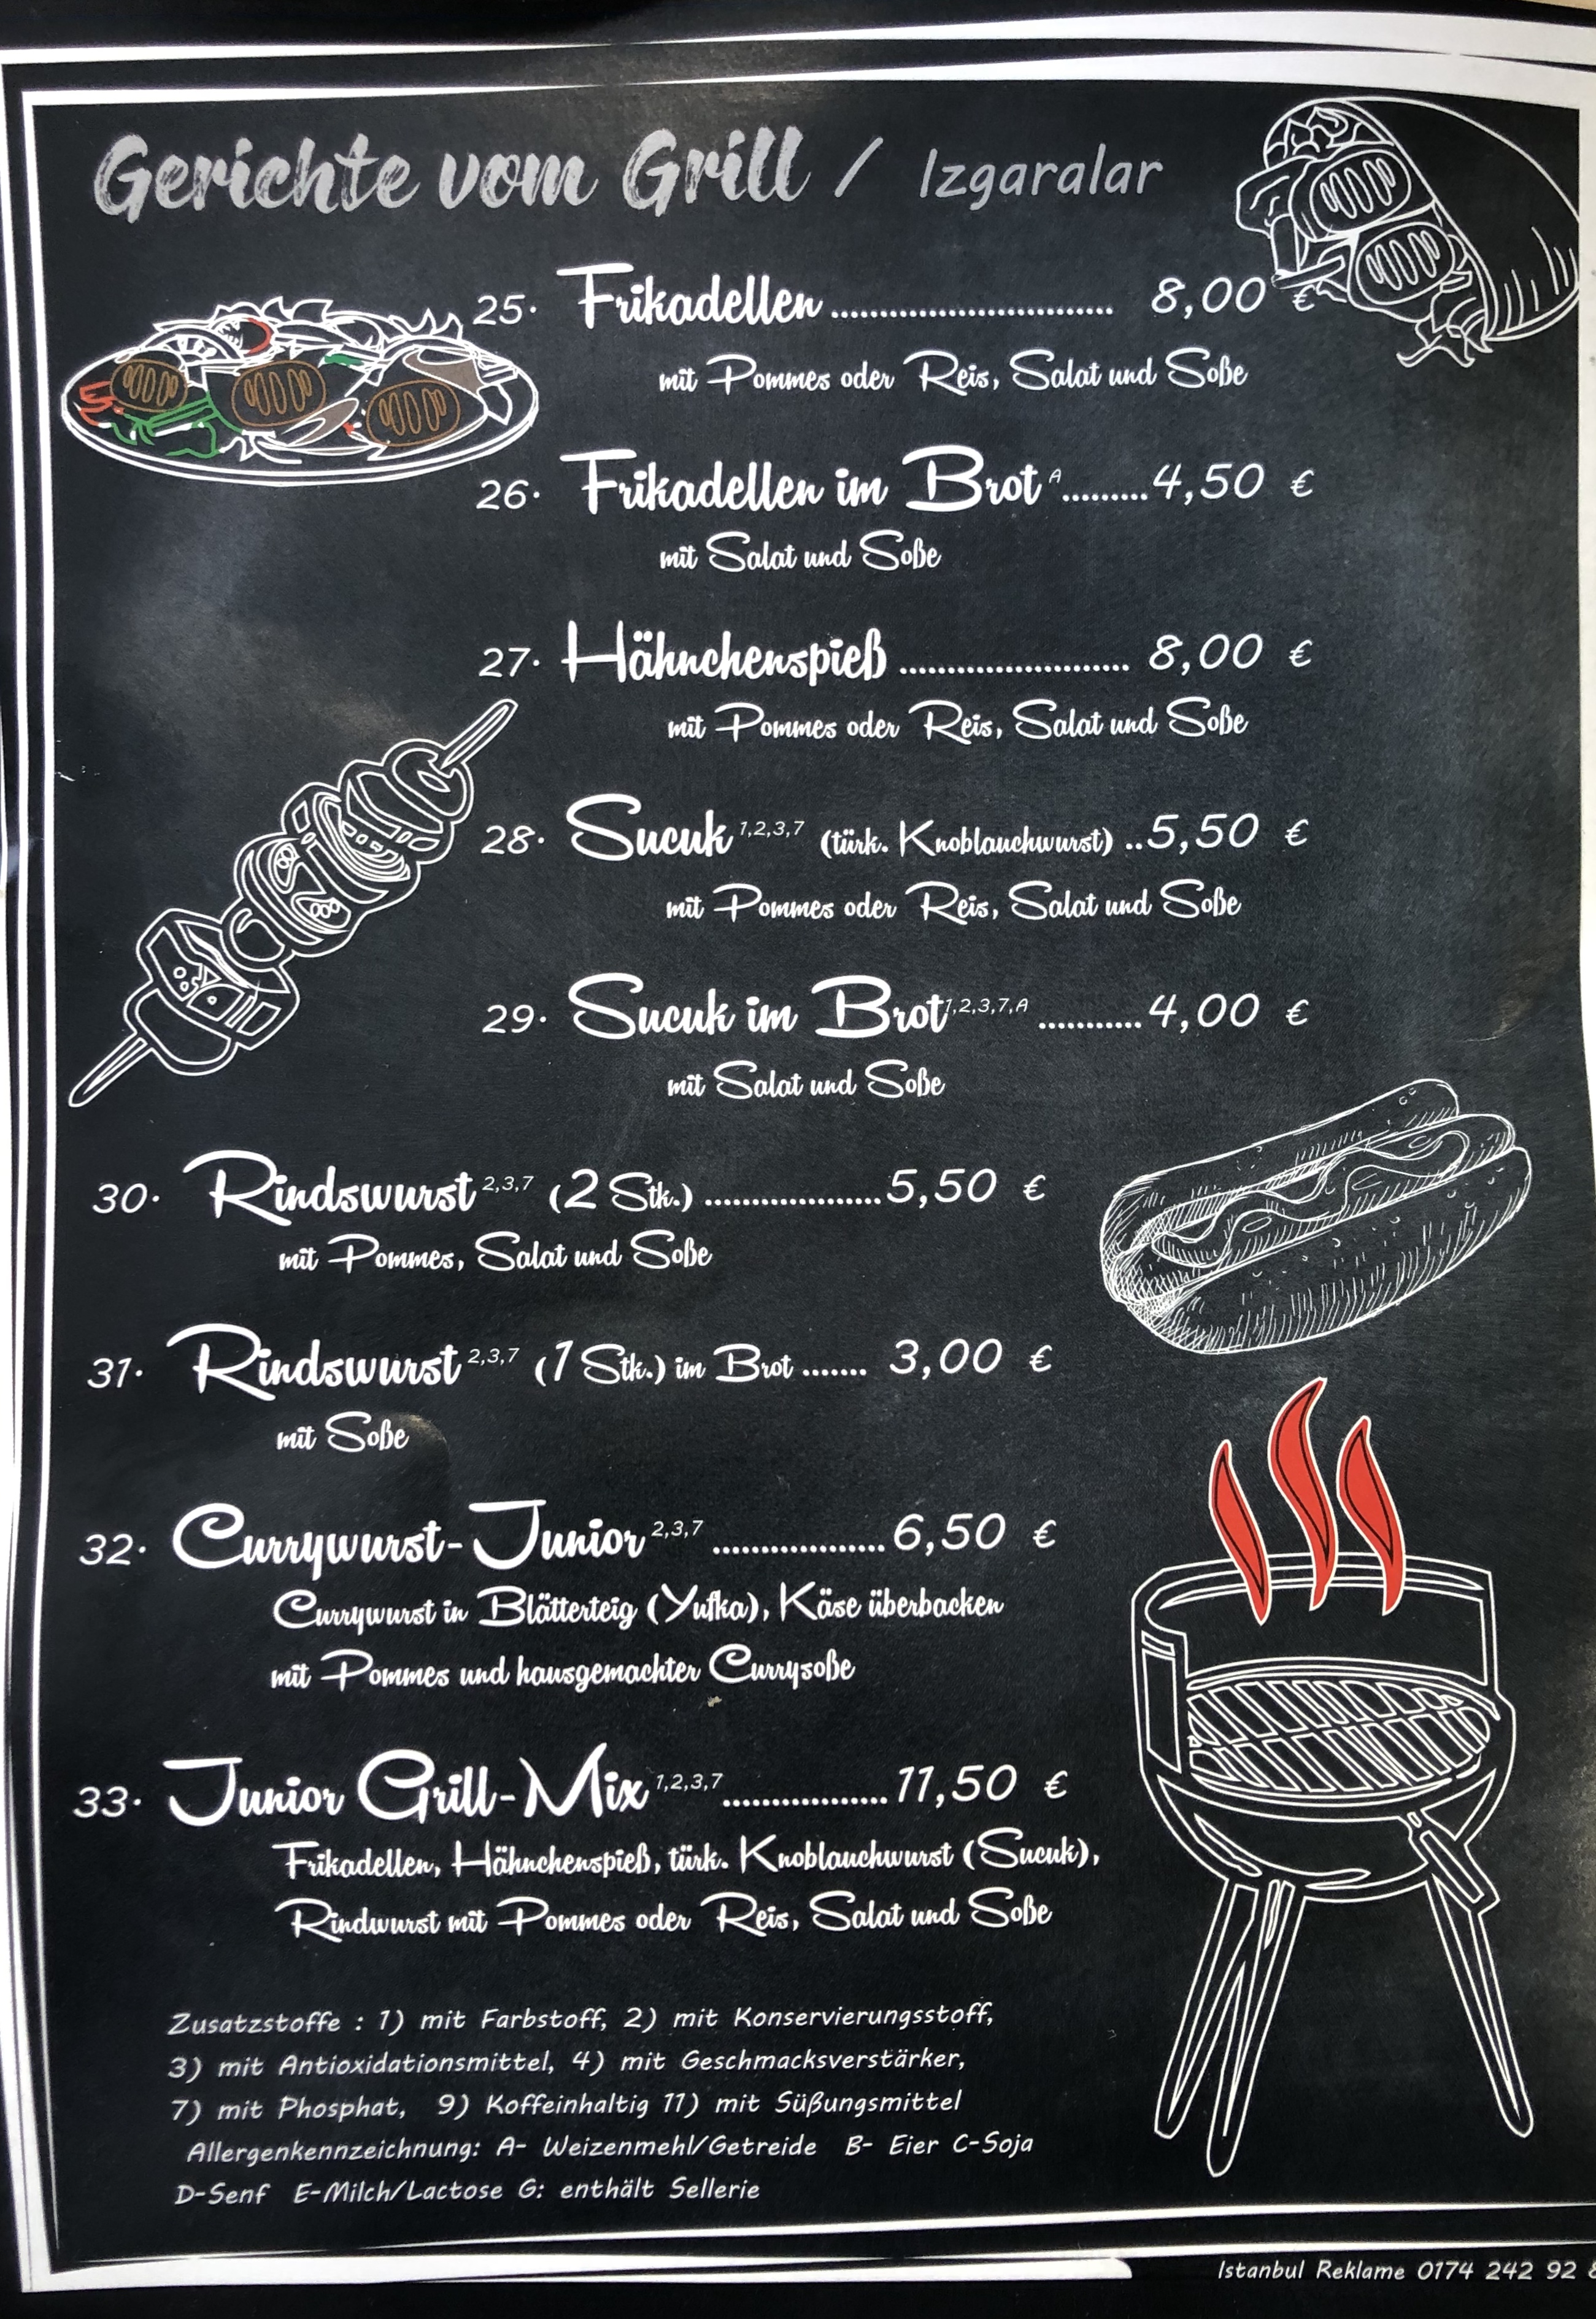 Gerichte vom Grill / Izgaralar
25. Frikadellen ............................ 8,00 €
mit Pommes oder Reis, Salat und Soße
26. Frikadellen im Brot A.........4,50 €
mit Salat und Soße
27. Hähnchenspieß ....................... 8,00 €
mit Pommes oder Reis, Salat und Soße
28. Sucuk 1,2,3,7 (türk. Knoblauchwurst) ..5,50 €
mit Pommes oder Reis, Salat und Soße
29. Sucuk im Brot 1,2,3,7,A ...........4,00 €
mit Salat und Soße
30. Rindswurst 2,3,7 (2 Stk.) ..................5,50 €
mit Pommes, Salat und Soße
31. Rindswurst 2,3,7 (1 Stk.) im Brot ....... 3,00 €
mit Soße
32. Currywurst-Junior 2,3,7 ..................6,50 €
Currywurst in Blätterteig (Yufka), Käse überbacken
mit Pommes und hausgemachter Currysoße
33. Junior Grill-Mix 1,2,3,7.................11,50 €
Frikadellen, Hähnchenspieß, türk. Knoblauchwurst (Sucuk),
Rindwurst mit Pommes oder Reis, Salat und Soße
Zusatzstoffe : 1) mit Farbstoff, 2) mit Konservierungsstoff,
3) mit Antioxidationsmittel, 4) mit Geschmacksverstärker,
7) mit Phosphat, 9) Koffeinhaltig 11) mit Süßungsmittel
Allergenkennzeichnung: A- Weizenmehl/Getreide B- Eier C-Soja
D-Senf E-Milch/Lactose G: enthält Sellerie
Istanbul Reklame 0174 242 92